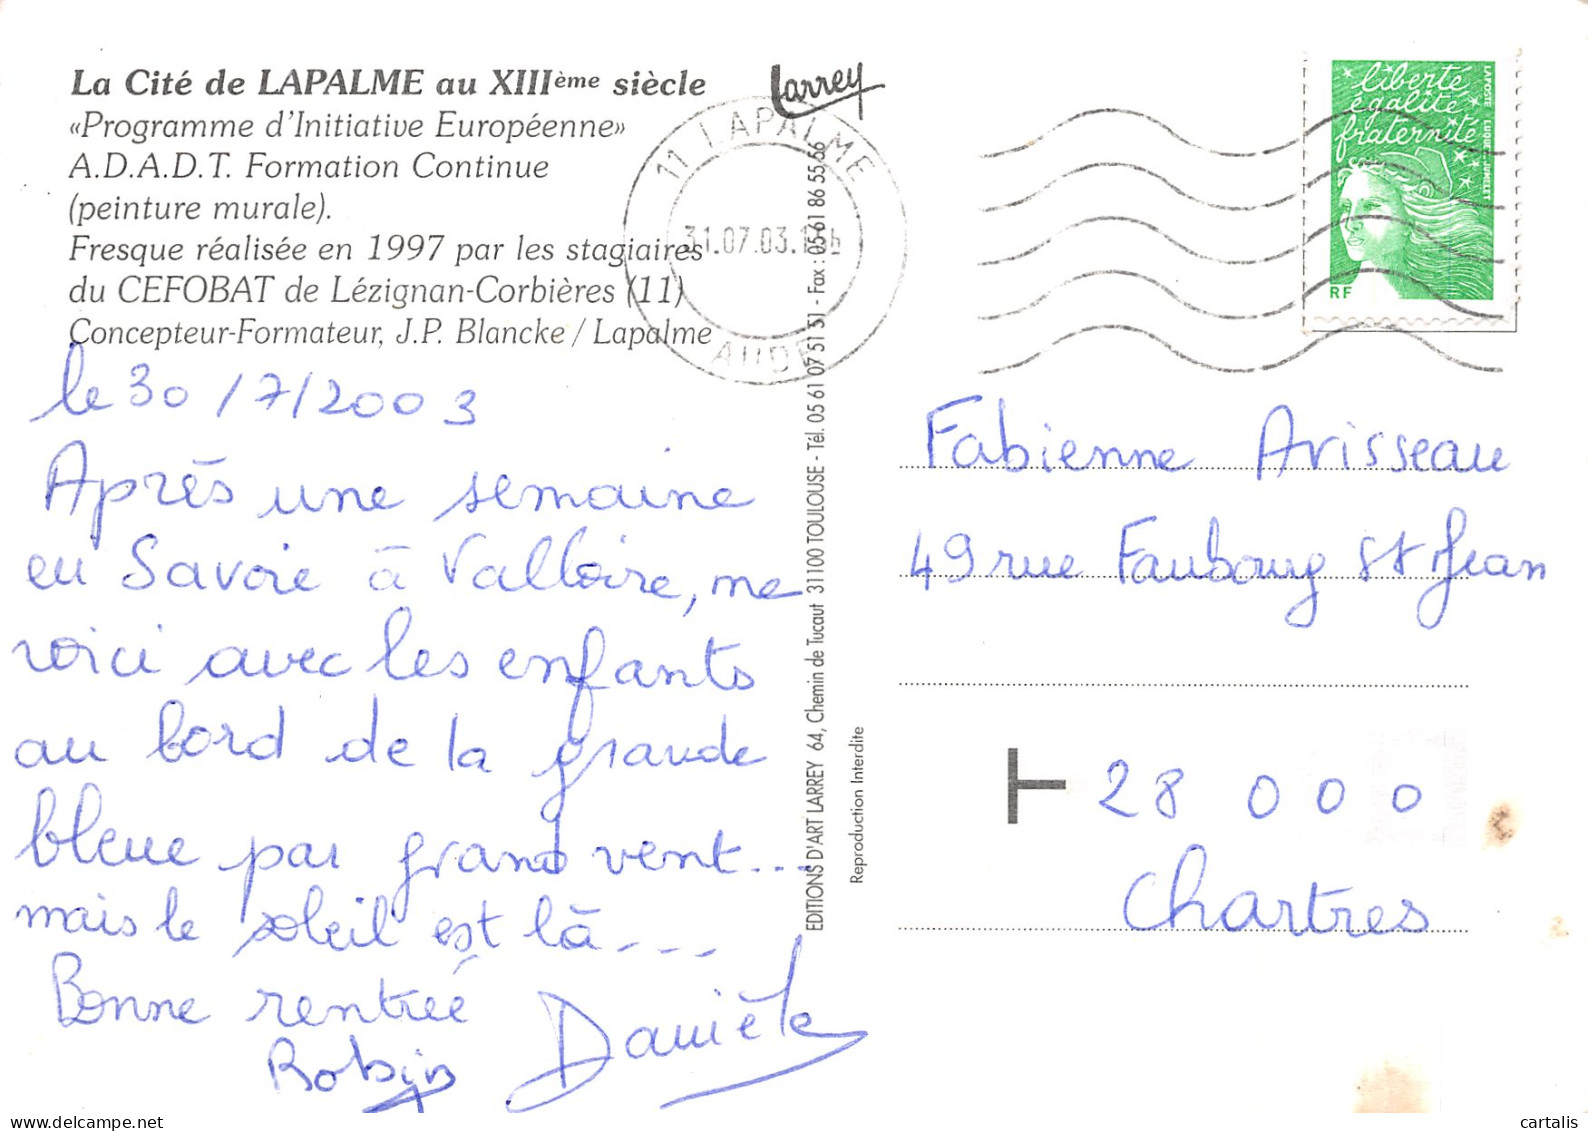 La Cité de LAPALME au XIIIème siècle
«Programme d'Initiative Européenne»
A.D.A.D.T. Formation Continue
(peinture murale).
Fresque réalisée en 1997 par les stagiaires
du CEFOBAT de Lézignan-Corbières (11)
Concepteur-Formateur, J.P. Blancke / Lapalme
le 30/7/2003
Après une semaine
en Savoie à Valloire, me
voici avec les enfants
au bord de la grande
bleue par grand vent...
mais le soleil est là---
Bonne rentrée
Robin Danièle
Larrey
11 LAPALME
31.07.03.
AUDE
EDITIONS D'ART LARREY 64, Chemin de Tucaut 31100 TOULOUSE - Tél. 05 61 07 51 51 - Fax : 05 61 86 55 66
Reproduction Interdite
liberté
égalité
fraternité
LA POSTE LUQUET-JUMELET
RF
Fabienne Avisseau
49 rue Faubourg St Jean
28 000
Chartres
www.delcampe.net
cartalis